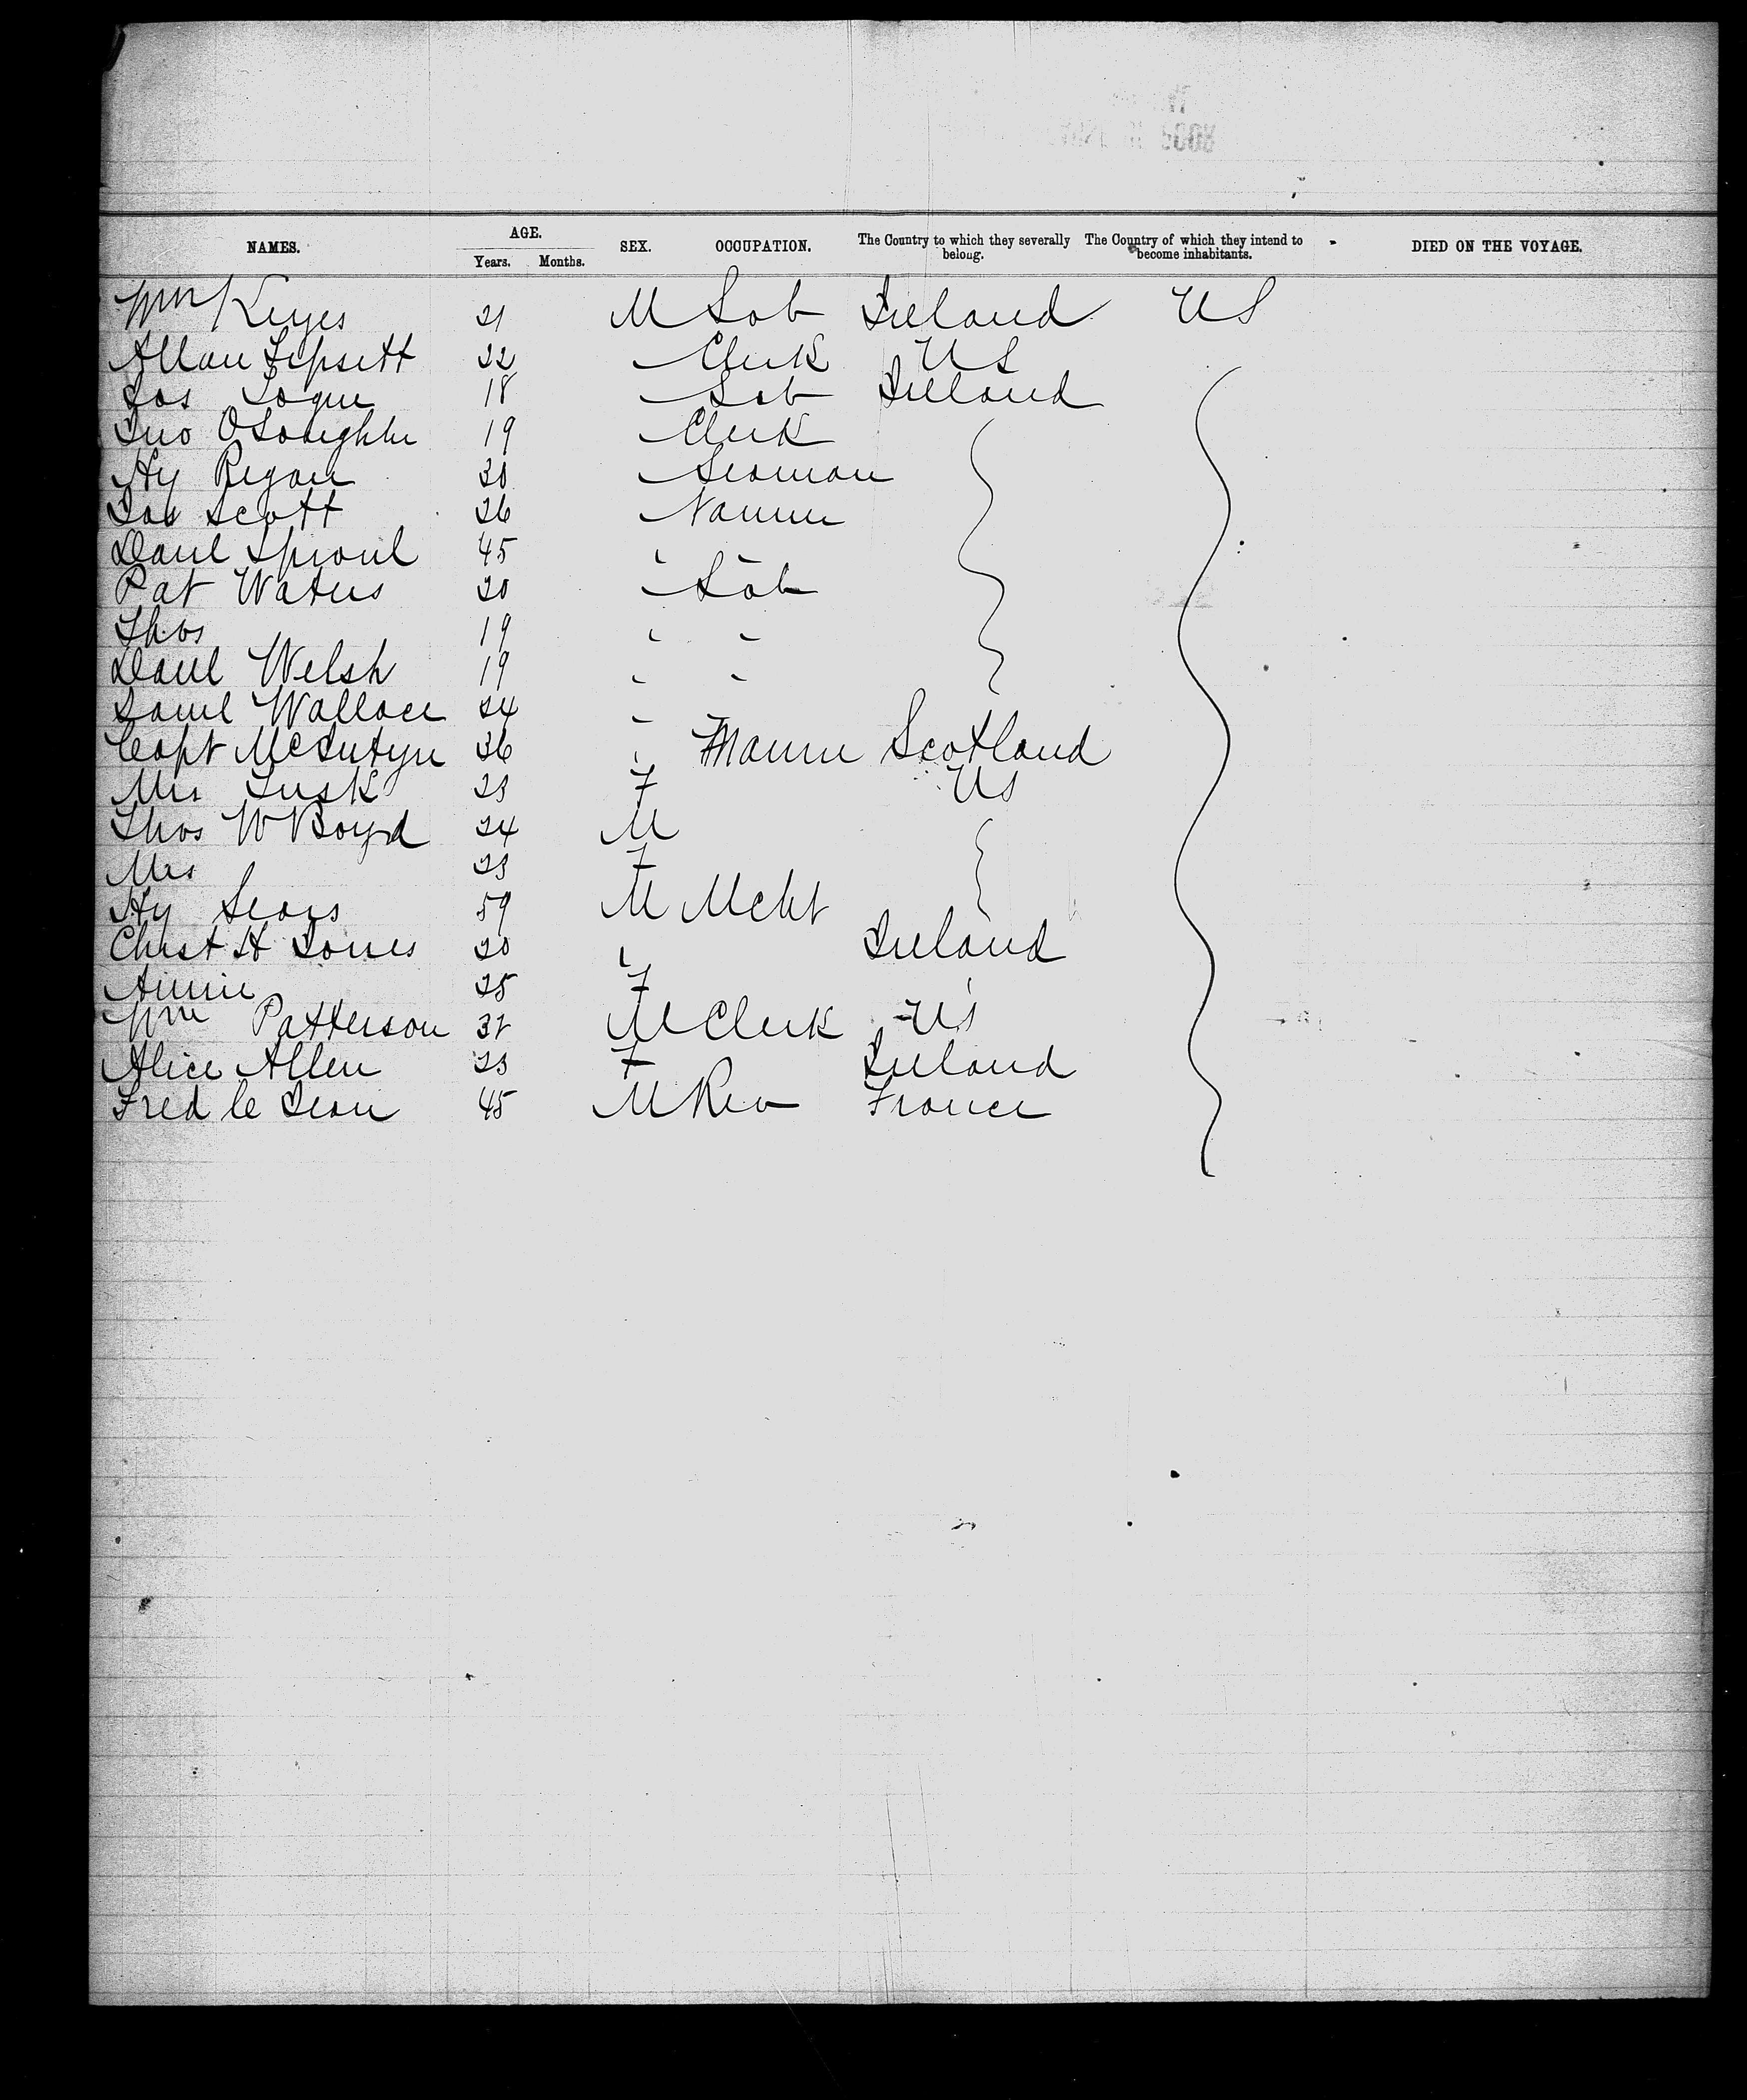 NAMES. AGE. Years. Months. SEX. OCCUPATION. The Country to which they severally belong. The Country of which they intend to become inhabitants. DIED ON THE VOYAGE.
Wm Keyes 21 M Lab Ireland US
Allan Lipsett 22 " Clerk US
Jas Logue 18 " Lab Ireland
Jno O'Loughlin 19 " Clerk
Hy Regan 30 " Seaman
Jas Scott 26 "
Danl Sproul 45 " "
Pat Waters 20 " Lab
Thos 19 " "
Danl Welsh 19 " "
Saml Wallace 24 " "
Capt McIntyre 36 " Scotland
Mrs Lusk 23 F US
Thos W Boyd 24 M
Mrs 23 F
Hy Sears 59 M Mcht
Chist H Jones 30 " Ireland
Annie 25 F "
Wm Patterson 32 M Clerk US
Alice Allen 23 F Ireland
Fred le Jean 45 M Rev France